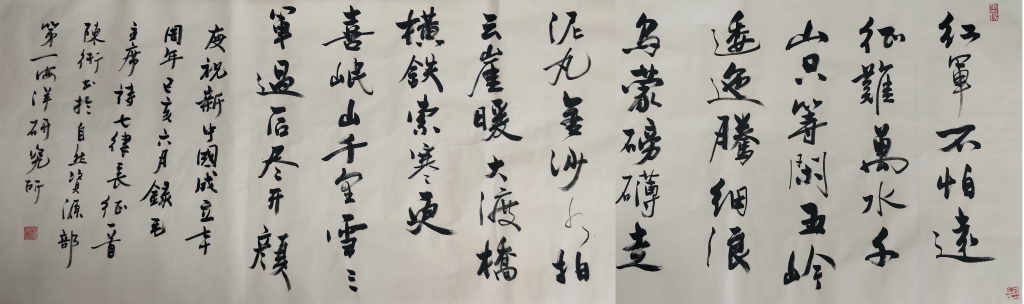 红軍不怕遠
征難萬水千
山只等閑五岭
逶迤騰細浪
烏蒙磅礴走
泥丸金沙水拍
云崖暖大渡橋
横鉄索寒更
喜岷山千里雪三
軍過后尽开顔
庆祝新中國成立七十
周年己亥六月録毛
主席詩七律長征一首
陳书於自然資源部
第一海洋研究所